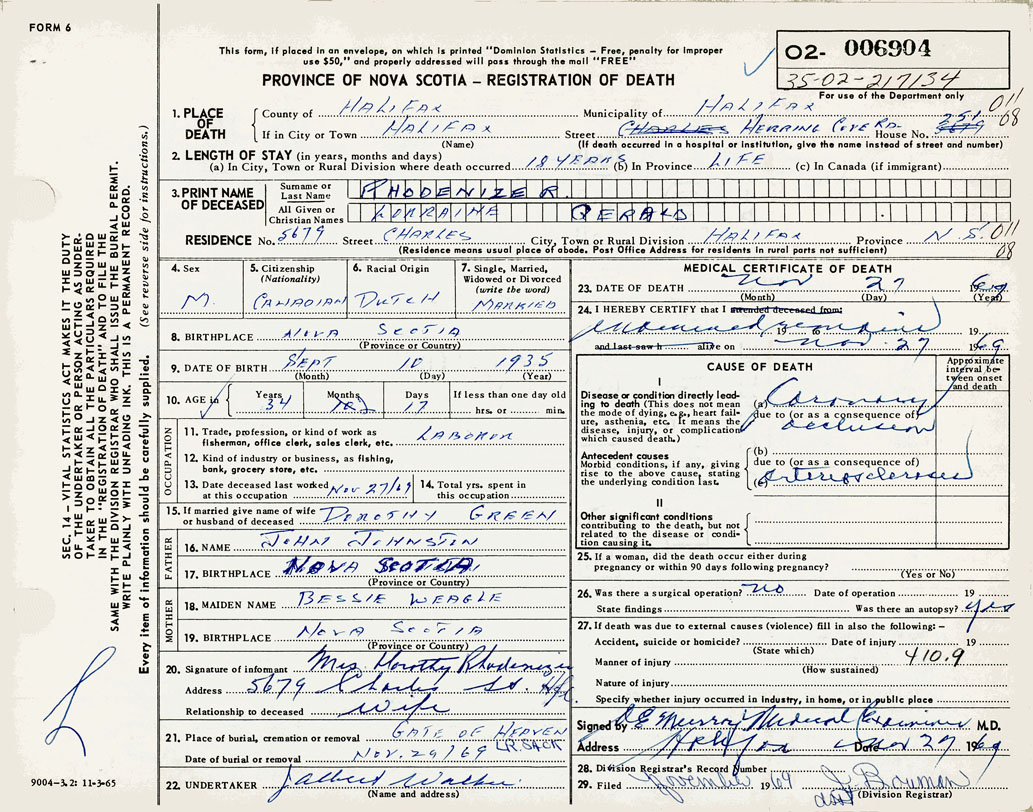 FORM 6
This form, if placed in an envelope, on which is printed "Dominion Statistics – Free, penalty for improper
use $50," and properly addressed will pass through the mail "FREE"
PROVINCE OF NOVA SCOTIA – REGISTRATION OF DEATH
02- 006904
35-02-217134
For use of the Department only
011
08
1. PLACE OF DEATH
County of HALIFAX Municipality of HALIFAX
If in City or Town HALIFAX Street CHARLES HERRING COVE RD. House No. 5679 251
(Name) (If death occurred in a hospital or institution, give the name instead of street and number)
2. LENGTH OF STAY (in years, months and days)
(a) In City, Town or Rural Division where death occurred 18 YEARS (b) In Province LIFE (c) In Canada (if immigrant)
3. PRINT NAME OF DECEASED
Surname or Last Name RHODENIZER
All Given or Christian Names LORRAINE GERALD
RESIDENCE No. 5679 Street CHARLES City, Town or Rural Division HALIFAX Province N.S. 011
08
(Residence means usual place of abode. Post Office Address for residents in rural parts not sufficient)
4. Sex M.
5. Citizenship (Nationality) CANADIAN
6. Racial Origin DUTCH
7. Single, Married, Widowed or Divorced (write the word) MARRIED
8. BIRTHPLACE NOVA SCOTIA
(Province or Country)
9. DATE OF BIRTH SEPT 10 1935
(Month) (Day) (Year)
10. AGE in Years 34 Months Days 17 If less than one day old hrs. or min.
OCCUPATION
11. Trade, profession, or kind of work as fisherman, office clerk, sales clerk, etc. LABORER
12. Kind of industry or business, as fishing, bank, grocery store, etc.
13. Date deceased last worked at this occupation NOV 27/69
14. Total yrs. spent in this occupation
15. If married give name of wife or husband of deceased DOROTHY GREEN
FATHER
16. NAME JOHN JOHNSTON
17. BIRTHPLACE NOVA SCOTIA
(Province or Country)
MOTHER
18. MAIDEN NAME BESSIE WEAGLE
19. BIRTHPLACE NOVA SCOTIA
(Province or Country)
20. Signature of informant Mrs Dorothy Rhodenizer
Address 5679 Charles St. Hfx
Relationship to deceased Wife
21. Place of burial, cremation or removal GATE OF HEAVEN
LR. SACK
Date of burial or removal NOV. 29/69
22. UNDERTAKER
(Name and address)
MEDICAL CERTIFICATE OF DEATH
23. DATE OF DEATH Nov 27 69
(Month) (Day) (Year)
24. I HEREBY CERTIFY that I attended deceased from:
examined remains 19
and last saw h alive on Nov. 27 1969
CAUSE OF DEATH
Approximate interval between onset and death
I
Disease or condition directly leading to death (This does not mean the mode of dying, e.g., heart failure, asthenia, etc. It means the disease, injury, or complication which caused death.)
(a) Coronary
due to (or as a consequence of)
occlusion
Antecedent causes
Morbid conditions, if any, giving rise to the above cause, stating the underlying condition last.
(b)
due to (or as a consequence of)
(c) arteriosclerosis
II
Other significant conditions
contributing to the death, but not related to the disease or condition causing it.
25. If a woman, did the death occur either during pregnancy or within 90 days following pregnancy?
(Yes or No)
26. Was there a surgical operation? no Date of operation 19
State findings Was there an autopsy? yes
27. If death was due to external causes (violence) fill in also the following: –
Accident, suicide or homicide? Date of injury 19
(State which)
Manner of injury 410.9
(How sustained)
Nature of injury
Specify whether injury occurred in industry, in home, or in public place
Signed by Murray Medical Examiner M.D.
Address Halifax Date Nov 27 1969
28. Division Registrar's Record Number
29. Filed November 1969 J. Bowman
(Division Registrar)
SEC. 14 – VITAL STATISTICS ACT MAKES IT THE DUTY
OF THE UNDERTAKER OR PERSON ACTING AS UNDER-
TAKER TO OBTAIN ALL THE PARTICULARS REQUIRED
IN THE "REGISTRATION OF DEATH" AND TO FILE THE
SAME WITH THE DIVISION REGISTRAR WHO SHALL ISSUE THE BURIAL PERMIT.
WRITE PLAINLY WITH UNFADING INK. THIS IS A PERMANENT RECORD.
Every item of information should be carefully supplied. (See reverse side for instructions.)
9004–3.2: 11-3-65